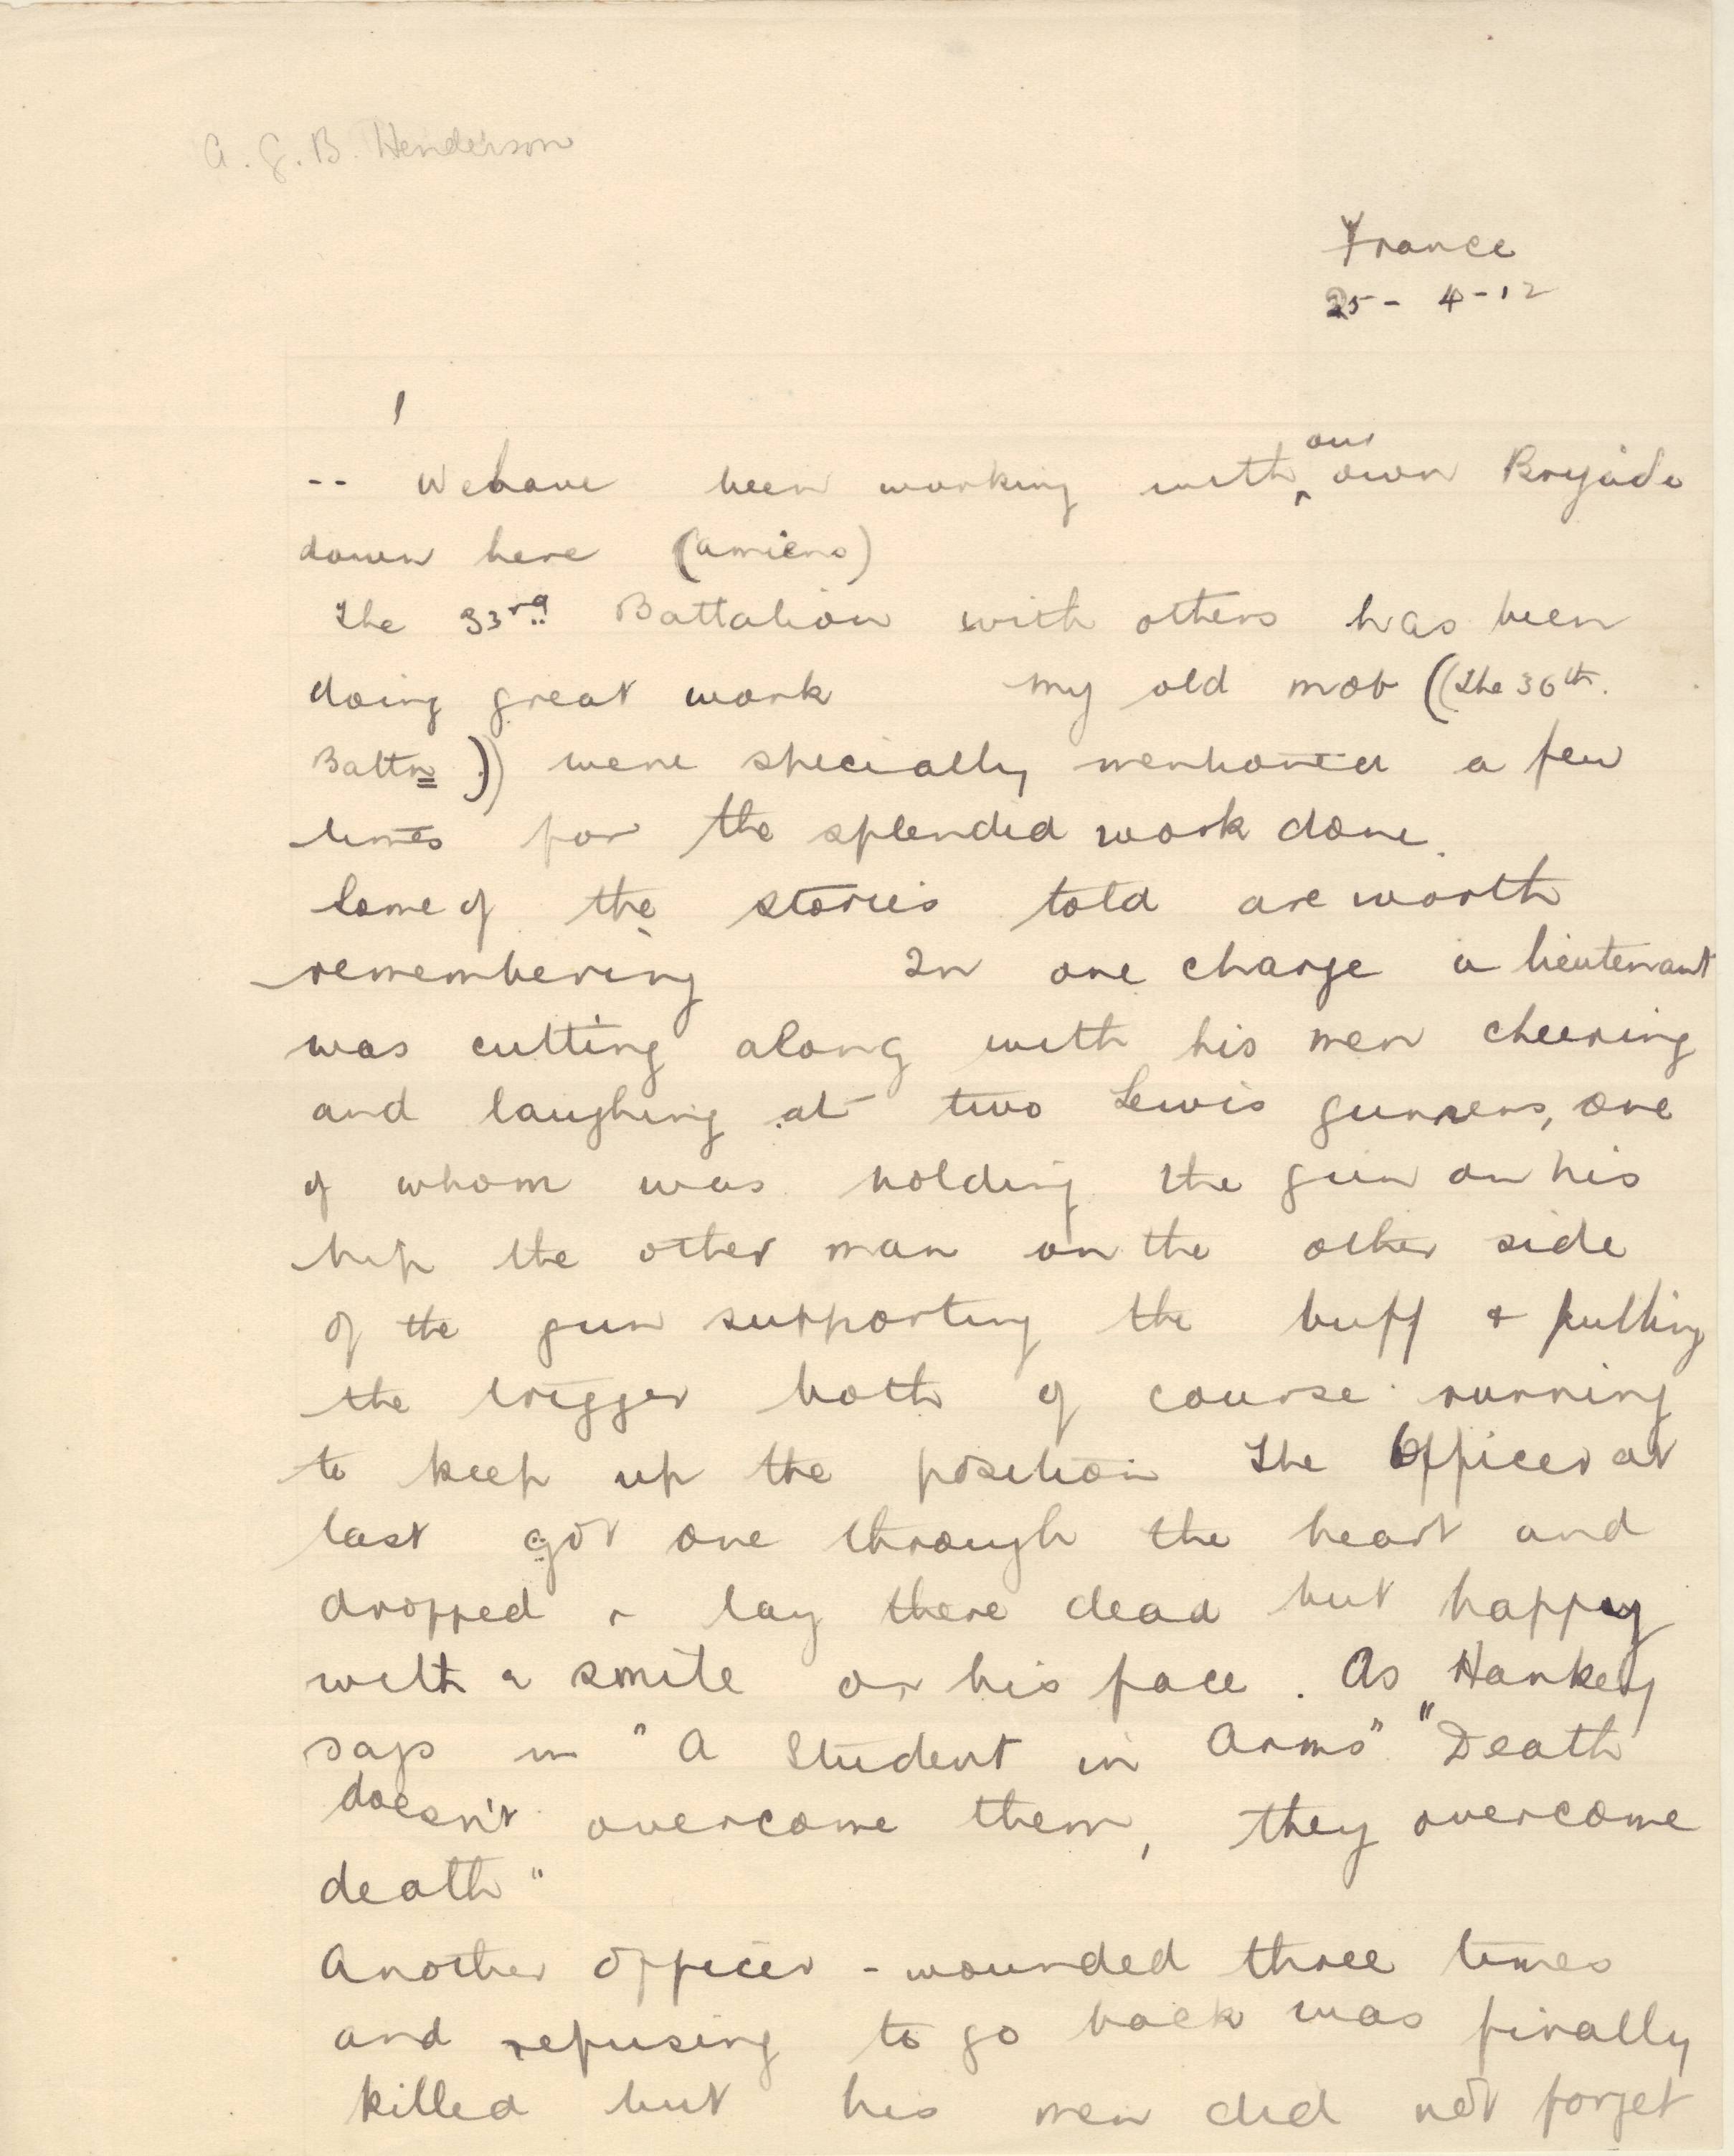 A. G. B. Henderson
France
25 - 4 - 12
-- We have been working with our own Brigade
down here (Amiens)
The 33rd Battalion with others has been
doing great work my old mob ((The 36th.
Battn)) were specially mentioned a few
times for the splendid work done.
Some of the stories told are worth
remembering In one charge a lieutenant
was cutting along with his men cheering
and laughing at two Lewis gunners, one
of whom was holding the gun on his
hip the other man on the other side
of the gun supporting the buff & pulling
the trigger both of course running
to keep up the position The Officer at
last got one through the heart and
dropped & lay there dead but happy
with a smile on his face. As Hankey
says in "A Student in Arms" "Death
doesn't overcome them, they overcome
death"
Another Officer - wounded three times
and refusing to go back was finally
killed but his men did not forget